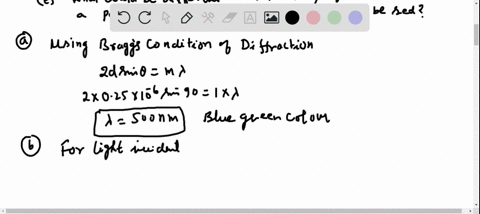 be used?
(a) Using Bragg's Condition of Diffraction
2d sinθ = nλ
2 x 0.25 x 10⁻⁶ sin 90 = 1 x λ
λ = 500nm Blue green colour
(b) For light incident